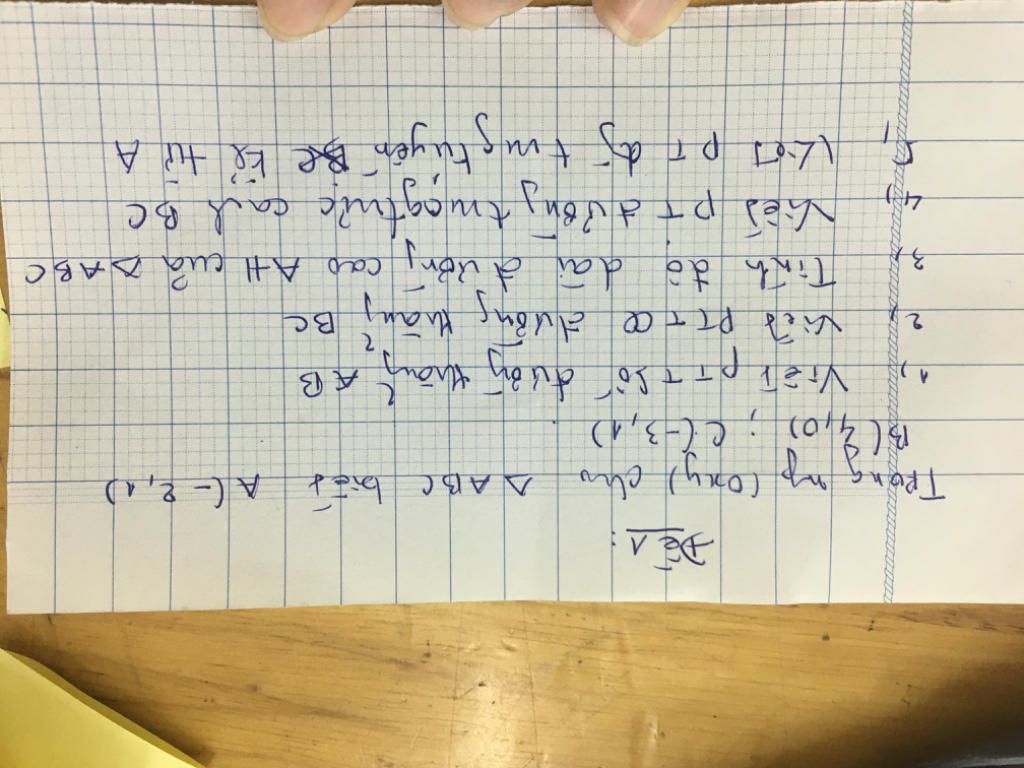 Đề 1 :
Trong mp (Oxy) cho Δ ABC biết A(-2,1)
B(4,0) ; C(-3,1)
1, Viết PT TSố đường thẳng AB
2, Viết PT TQ đường thẳng BC
3, Tính độ dài đường cao AH của Δ ABC
4, Viết PT đường trung trực cạnh BC
5, Viết PT đg trung tuyến kẻ từ A